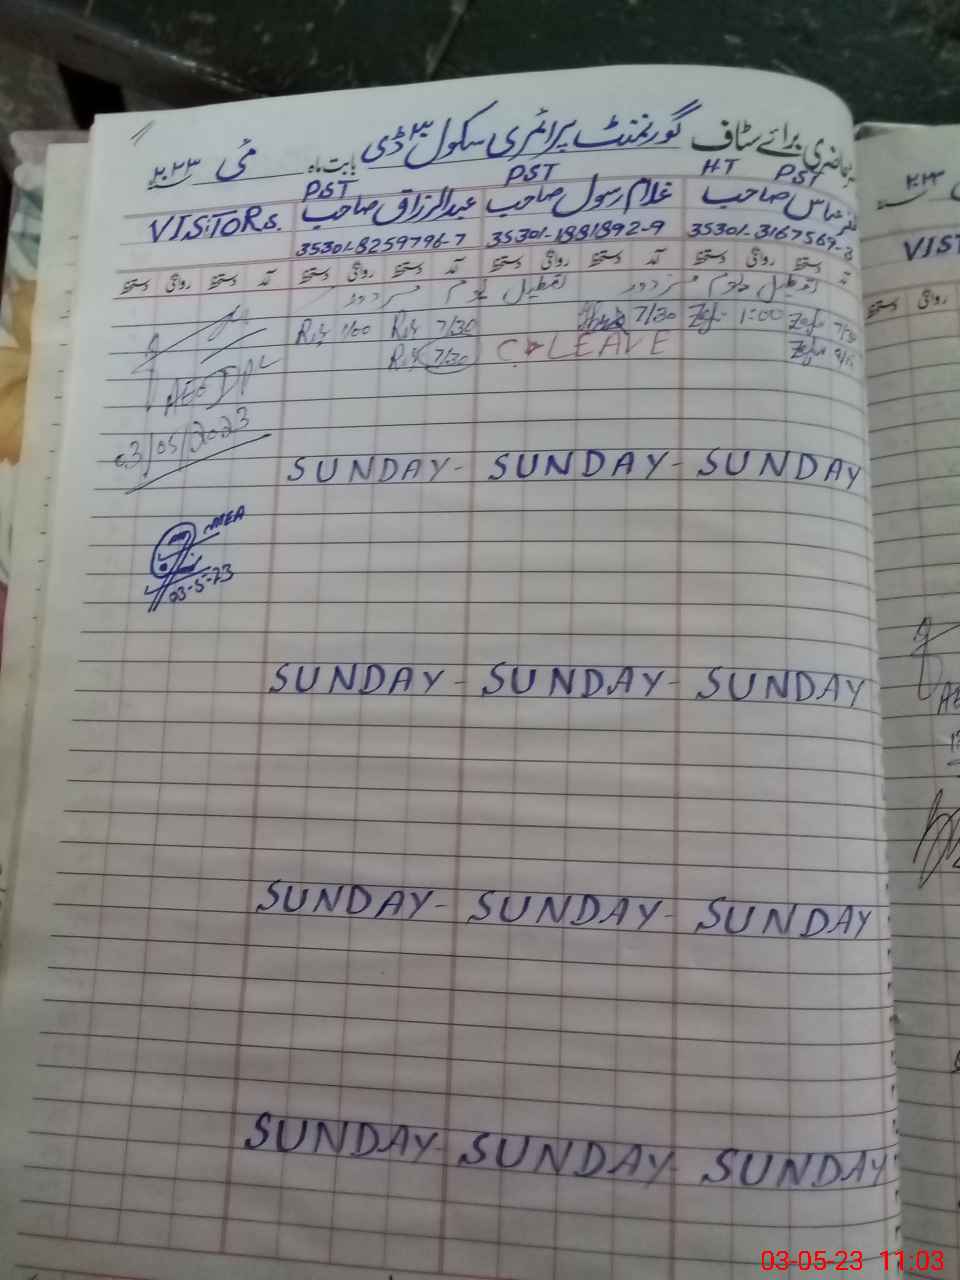 حاضری برائے سٹاف گورنمنٹ پرائمری سکول ۳ ڈی بابت ماہ مئی ۲۰۲۳
HT PST PST PST
عباس صاحب غلام رسول صاحب عبدالرزاق صاحب VISITORS.
35301-3167569-3 35301-1881892-9 35301-8259796-7
آمد دستخط روانگی دستخط آمد دستخط روانگی دستخط آمد دستخط روانگی دستخط آمد دستخط روانگی دستخط
تعطیل یوم مزدور تعطیل یوم مزدور
7/30 1:00 7/30 7/30 1/00
C-LEAVE 7/30
AEO
03/05/2023
SUNDAY - SUNDAY - SUNDAY
MEA
03-5-23
SUNDAY - SUNDAY - SUNDAY
SUNDAY - SUNDAY - SUNDAY
SUNDAY - SUNDAY - SUNDAY
۲۰۲۳
VIST
روانگی دستخط
03-05-23 11:03